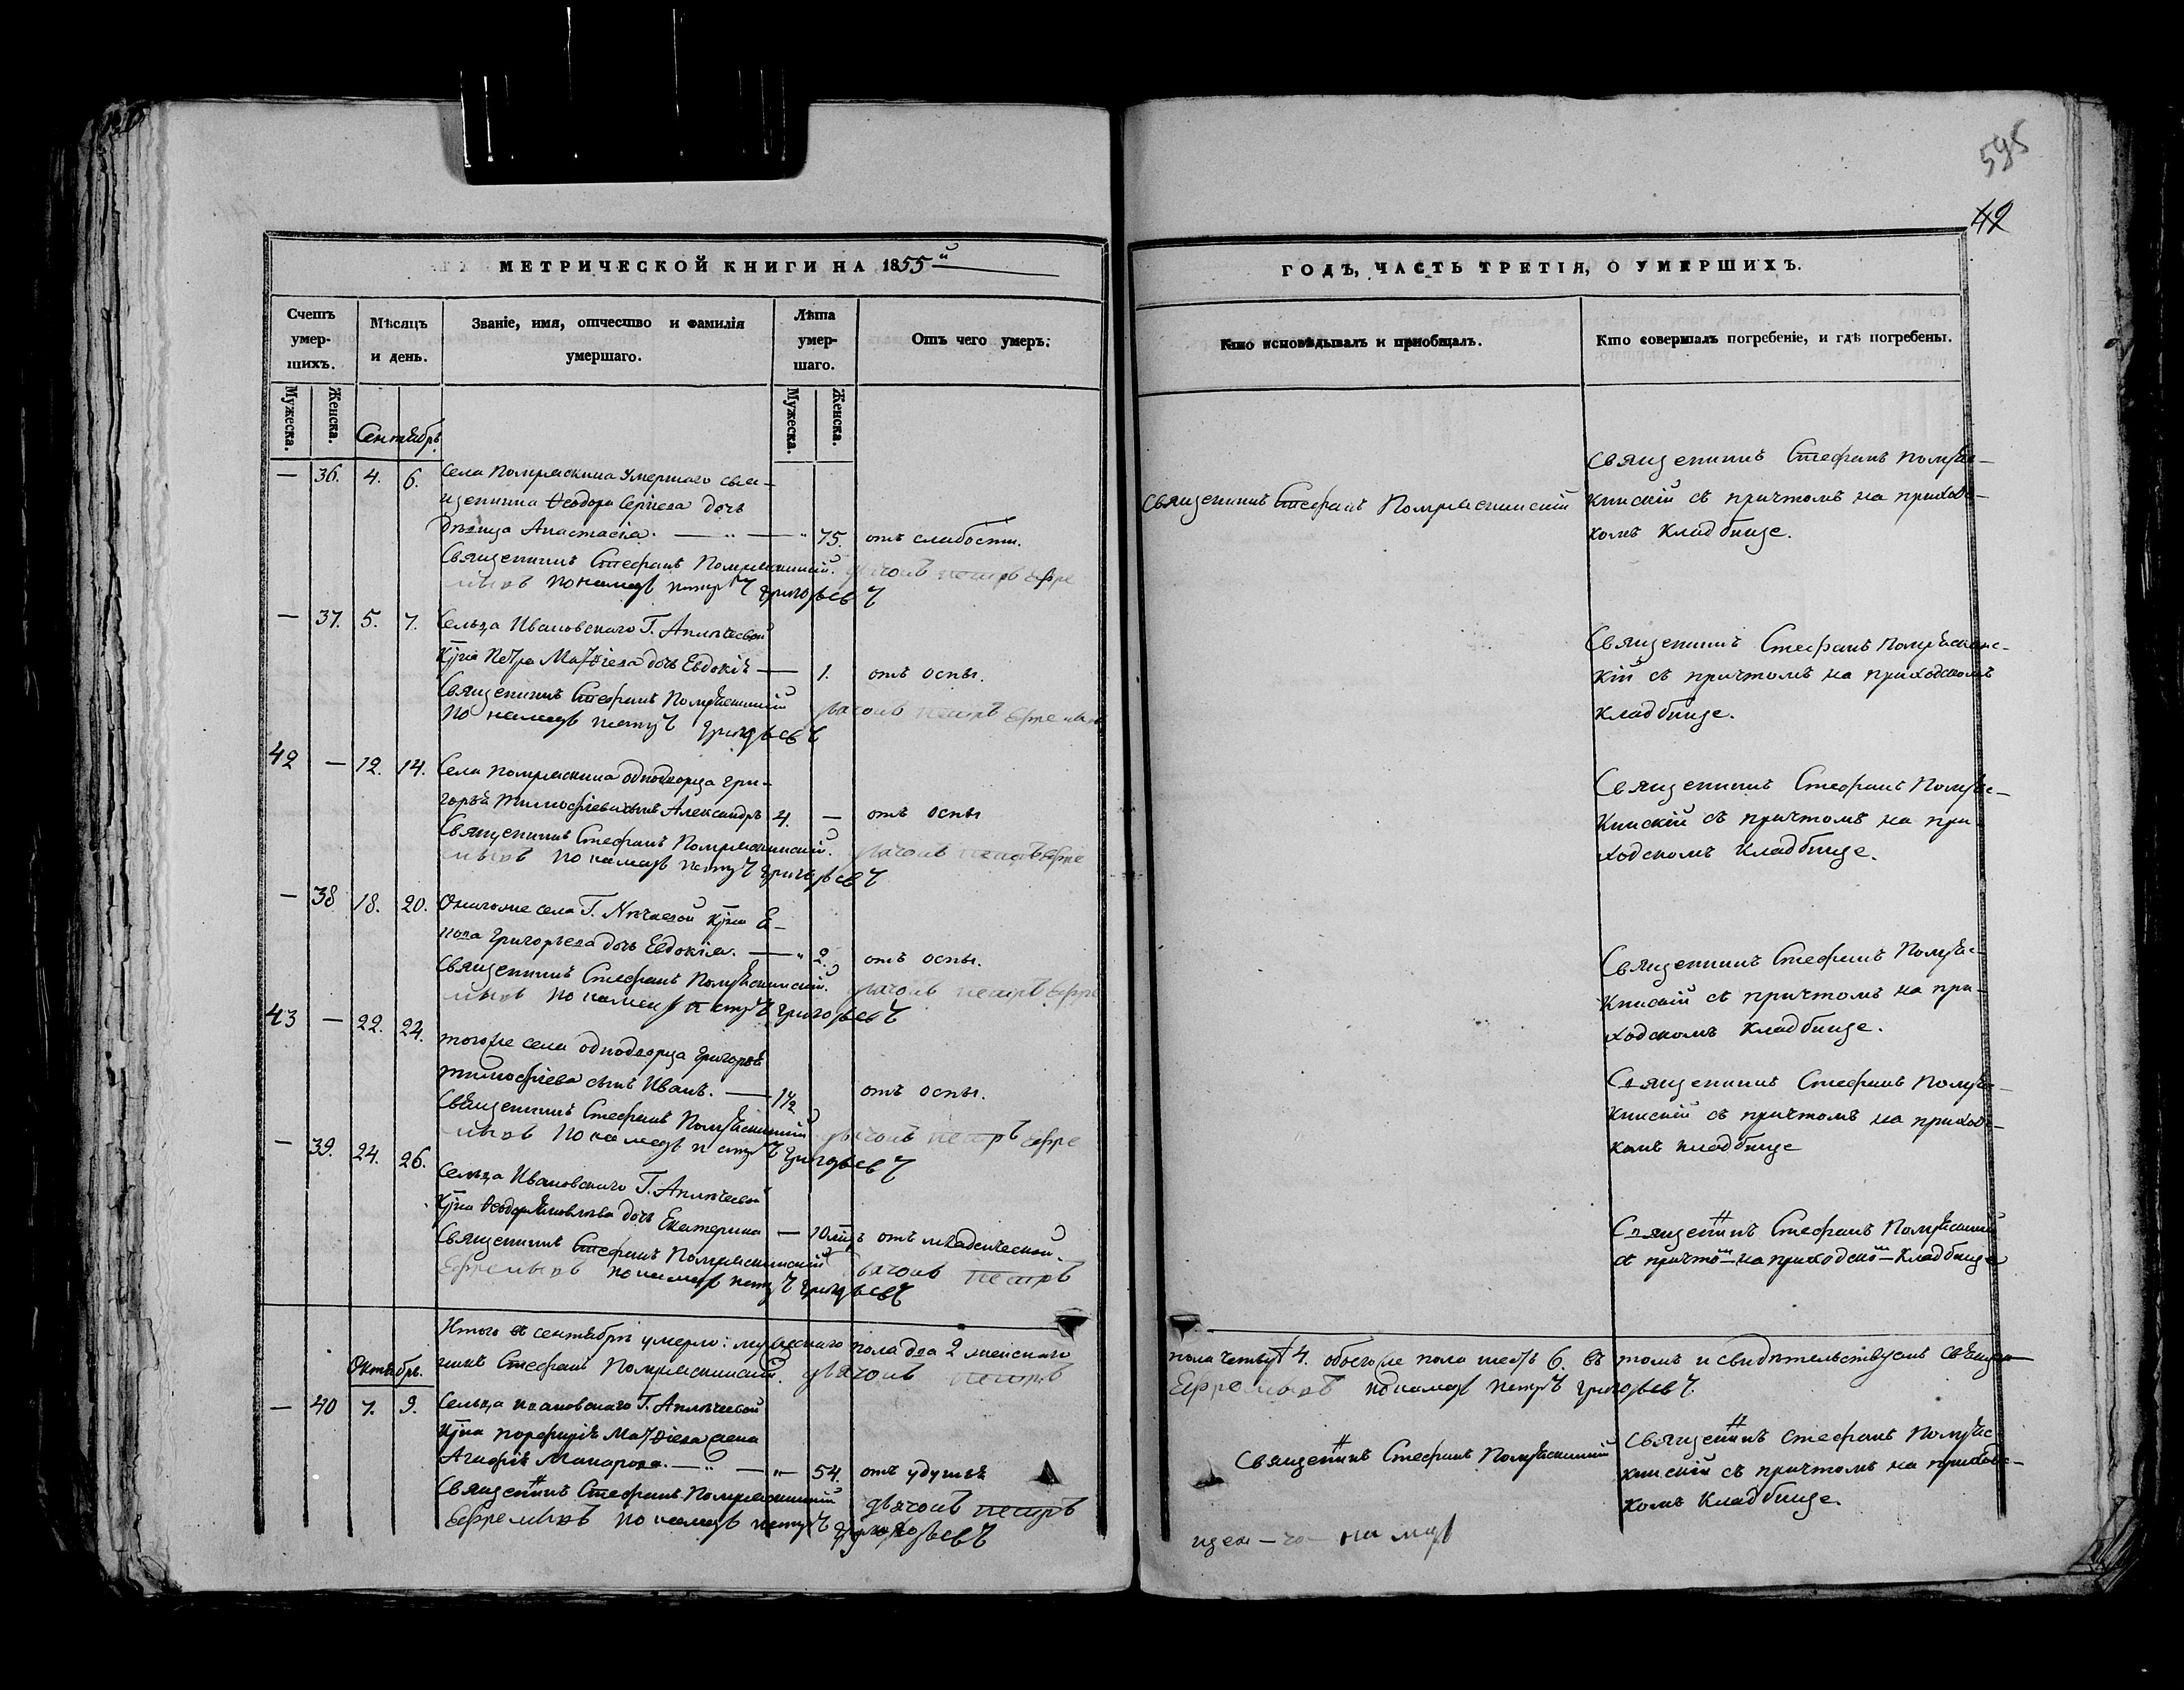 595
42
МЕТРИЧЕСКОЙ КНИГИ НА 1855й
ГОДЪ, ЧАСТЬ ТРЕТІЯ, О УМЕРШИХЪ.
Счетъ умер-шихъ.
Мѣсяцъ и день.
Званіе, имя, отчество и фамилія умершаго.
Лѣта умер-шаго.
Отъ чего умеръ.
Кто исповѣдывалъ и пріобщалъ.
Кто совершалъ погребеніе, и гдѣ погребены.
Мужеска.
Женска.
Мужеска.
Женска.
Сентябрь
— 36. 4. 6. Села Помряскина умершаго свя-
щенника Ѳеодора Сергіева дочь
Дѣвица Анастасія. — „ — „ 75. отъ слабости.
Священникъ Стефанъ Помряскинскій. дьячокъ Петръ Ефре
мывъ пономарь Петръ Григорьевъ
Священникъ Стефанъ Помряскинскій
Священникъ Стефанъ Помряс-
кинскій съ причтомъ на приходс-
комъ кладбище.
— 37. 5. 7. Сельца Ивановскаго Г.
Петра Матѳіева дочь Евдокія — 1. отъ оспы.
Священникъ Стефанъ Помряскинскій дьячокъ Петръ Ефремывъ
пономарь Петръ Григорьевъ
Священникъ Стефанъ Помряскинс-
кій съ причтомъ на приходскомъ
кладбище.
42 — 12. 14. Села Помряскина однодворца Гри-
горья Тимофіева сынъ Александръ 4. — отъ оспы
Священникъ Стефанъ Помряскинскій. дьячокъ Петръ Ефре
мывъ пономарь Петръ Григорьевъ
Священникъ Стефанъ Помряс-
кинскій съ причтомъ на при-
ходскомъ кладбище.
— 38 18. 20. Онагоже села Г.
Григорьева дочь Евдокія. — „ 2. отъ оспы.
Священникъ Стефанъ Помряскинскій. дьячокъ Петръ Ефре
мывъ пономарь Петръ Григорьевъ
Священникъ Стефанъ Помряс-
кинскій съ причтомъ на при-
ходскомъ кладбище.
43 — 22. 24. тогоже села однодворца Григорья
Тимофіева сынъ Иванъ. — 1½ отъ оспы.
Священникъ Стефанъ Помряскинскій дьячокъ Петръ Ефре
мывъ пономарь Петръ Григорьевъ
Священникъ Стефанъ Помряс-
кинскій съ причтомъ на приходс-
комъ кладбище
— 39. 24. 26. Сельца Ивановскаго Г.
дочь Екатерина — 10 отъ младенческой.
Священникъ Стефанъ Помряскинскій дьячокъ Петръ
Ефремывъ пономарь Петръ Григорьевъ
Священникъ Стефанъ Помряскинскій
съ причтом на приходском кладбище
Итого въ сентябрѣ умерло: мужескаго пола два 2 женскаго пола четыре 4. обоегоже пола шесть 6. въ томъ и свидѣтельствуемъ Священ-
никъ Стефанъ Помряскинскій. дьячокъ Петръ Ефремывъ пономарь Петръ Григорьевъ.
Октябрь.
— 40 7. 9. Сельца Ивановскаго Г.
Порфирія Матѳіева жена
Агафія Макарова. — „ — „ — 54. отъ удушья
Священникъ Стефанъ Помряскинскій дьячокъ Петръ
Ефремывъ пономарь Петръ Григорьевъ
Священникъ Стефанъ Помряскинскій
Священникъ Стефанъ Помряс
кинскій съ причтомъ на приходс-
комъ кладбище.